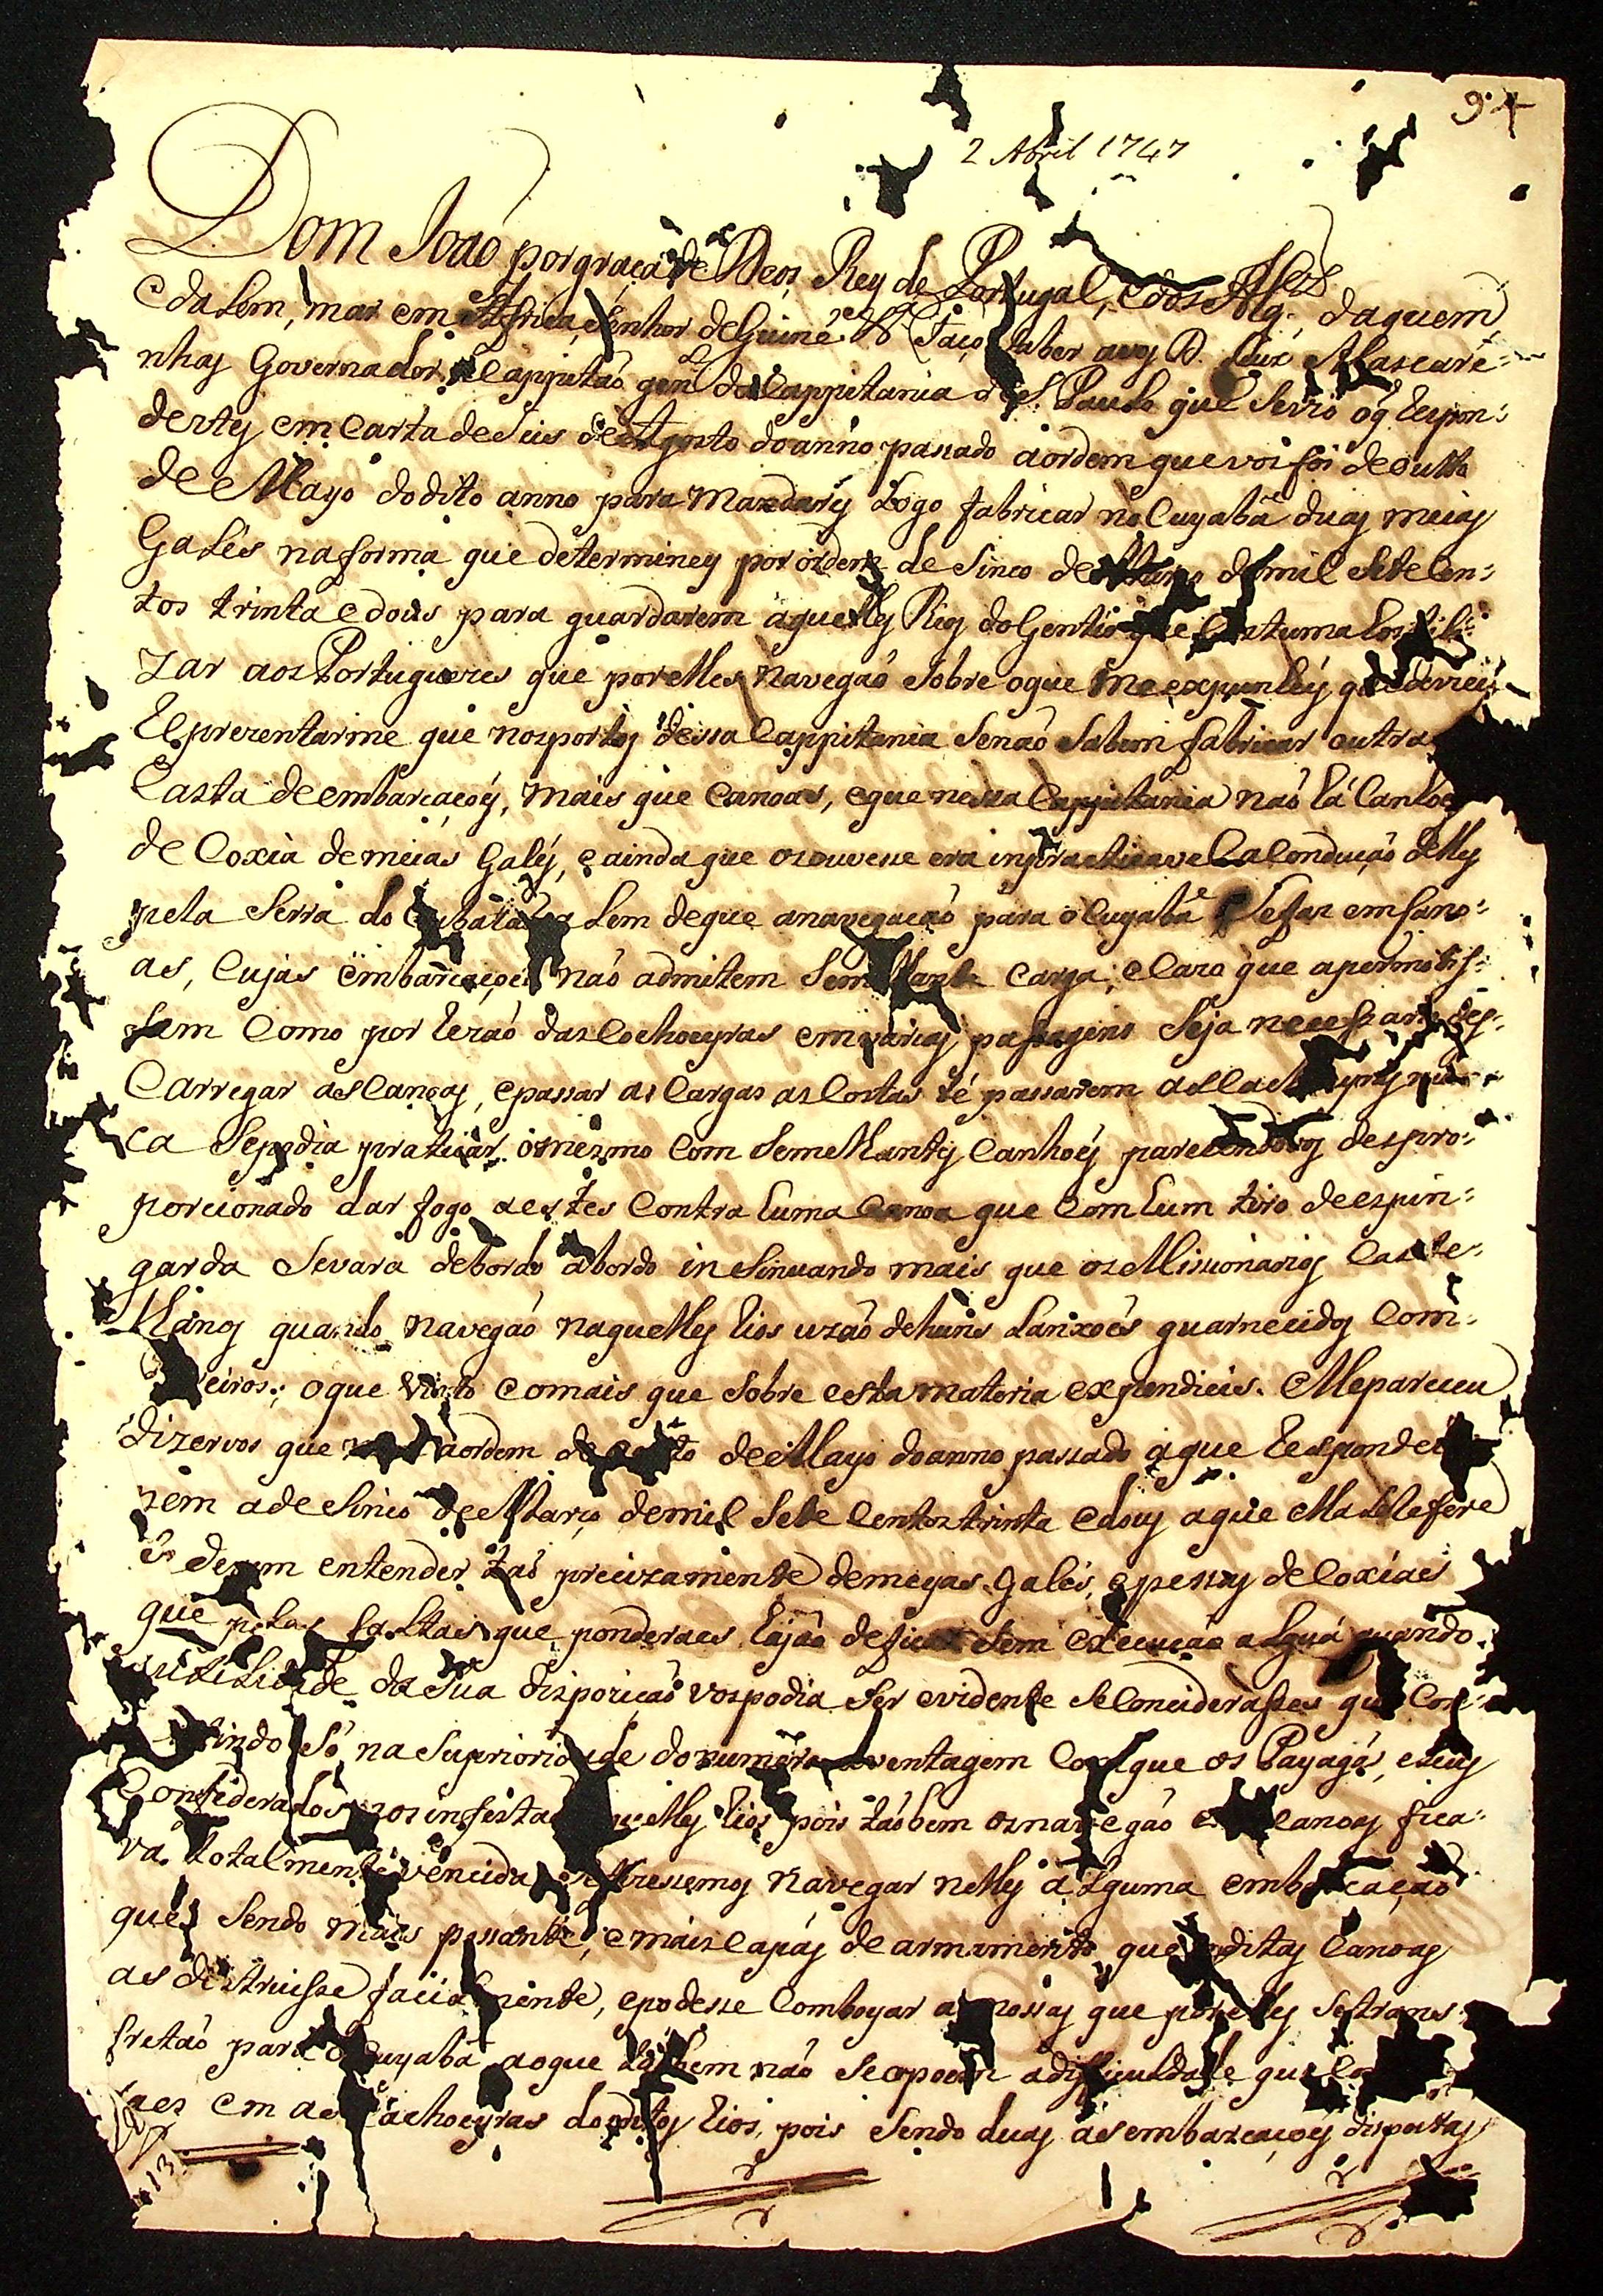 94
2 Abril 1747
Dom Joaõ por graça de Deos Rey de Portugal, e dos Alg.es daquem
e dalem, mar em Africa, Senhor de Guiné &.ª Faço saber avos D. Luis Mascare-
nhas Governador e Cappitaõ gen.al da Cappitania de S. Paulo que se vio o q̃ respon-
destes em carta de seis de Agosto do anno passado a ordem que vos foi de outto
de Mayo do dito anno para mandares logo fabricar no Cuyabâ duas meias
Galês na forma que determiney por ordem de sinco de Março de mil setecen-
tos trinta e dous para guardarem aquelles Rios do Gentio que costuma hostili-
zar aos Portuguezes que por elles navegaõ sobre o que me expunheis q devieis
reprezentarme que nos portos dessa Cappitania se naõ sabem fabricar outra
casta de embarcações, mais que canoas, e que nessa Cappitania naõ há canhoes
de Coxia de meias Galés, e ainda que os ouvesse era inpracticavel a conduçaõ delles
pela serra do Cubataõ alem de que a navegaçaõ para o Cuyabâ se faz em cano-
as, cujas embarcaçoes naõ admitem semelhante carga; e caso que a permitis-
sem como por rezaõ das cachoeyras em varias passagens seja necessario des-
carregar as canoas, e passar as cargas as costas té passarem as cachoeyras nun-
ca se podia praticar o mesmo com semelhantes canhoés parecendovos despro-
porcionado dar fogo a estes contra huma canoa que com hum tiro de espin-
garda se vara de bordo a bordo insinuando mais que os Missionarios Caste-
lhanos quando navegaõ naquelles rios uzaõ de huns lanxoês guarnecidos com
eiros; o que visto e o mais que sobre esta materia expendieis. Me pareceu
dizervos que nem a ordem de outto de Mayo do anno passado a que respondeis
nem a de sinco de Março de mil sete centos trinta e dous a que ella se refere
se devem entender taõ precizamente de meyas Galés, e pessas de Coxias
que pelas faltas que ponderaes hajaõ de ficar sem execuçaõ algũa quando
a utilidade da sua dispoziçaõ vos podia ser evidente se considerasses que con-
sistindo só na superioridade do numero a ventagem com que os Payagás, e seus
confederados nos infestaõ aquelles rios pois taõbem os navegaõ em canoas fica-
va totalmente vencida se fizessemos navegar nelles alguma embarcaçaõ
que sendo mais possante, e mais capás de armamento que as ditas canoas
as destruisse facilmente, e podesse comboyar as nossas que por elles se trans-
fretaõ para o Cuyabá ao que taõbem naõ se opoem a difficuldade que
em as cachoeyras dos ditos rios, pois sendo duas as embarcações dispostas